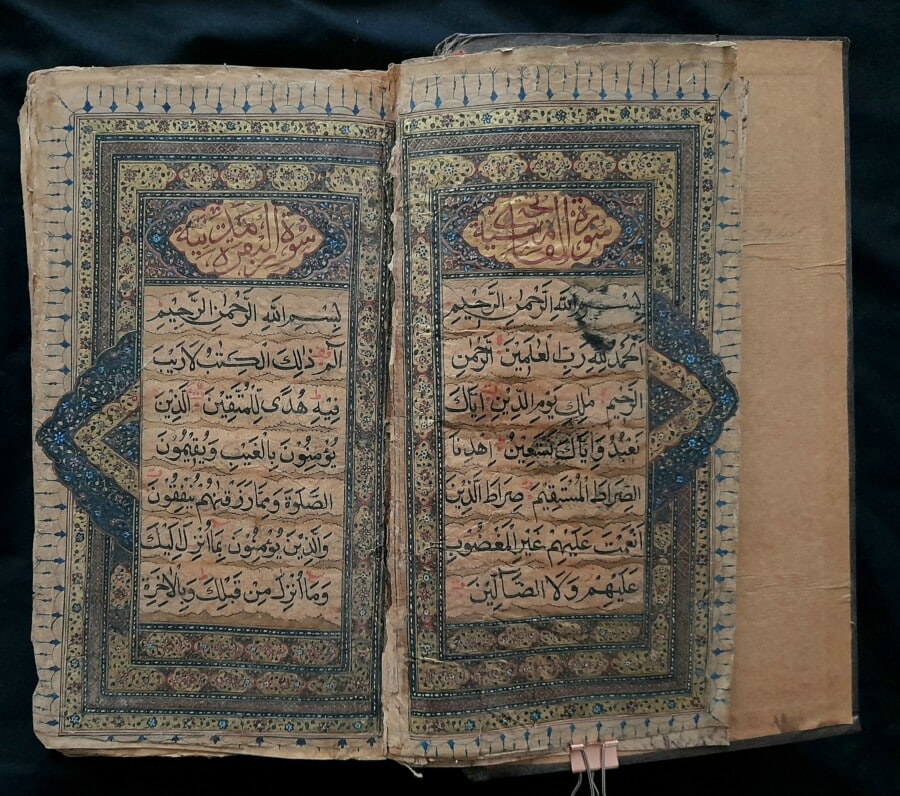 سورة الفاتحة
بِسْمِ اللهِ الرَّحْمٰنِ الرَّحِيْمِ
اَلْحَمْدُ لِلّٰهِ رَبِّ الْعٰلَمِيْنَ الرَّحْمٰنِ
الرَّحِيْمِ مٰلِكِ يَوْمِ الدِّيْنِ اِيَّاكَ
نَعْبُدُ وَاِيَّاكَ نَسْتَعِيْنُ اِهْدِنَا
الصِّرَاطَ الْمُسْتَقِيْمَ صِرَاطَ الَّذِيْنَ
اَنْعَمْتَ عَلَيْهِمْ غَيْرِ الْمَغْضُوْبِ
عَلَيْهِمْ وَلَا الضَّآلِّيْنَ
سورة البقرة مدنية
بِسْمِ اللهِ الرَّحْمٰنِ الرَّحِيْمِ
الٓمٓ ذٰلِكَ الْكِتٰبُ لَارَيْبَ
فِيْهِ هُدًى لِلْمُتَّقِيْنَ الَّذِيْنَ
يُؤْمِنُوْنَ بِالْغَيْبِ وَيُقِيْمُوْنَ
الصَّلٰوةَ وَمِمَّا رَزَقْنٰهُمْ يُنْفِقُوْنَ
وَالَّذِيْنَ يُؤْمِنُوْنَ بِمَا اُنْزِلَ اِلَيْكَ
وَمَا اُنْزِلَ مِنْ قَبْلِكَ وَبِالْاٰخِرَةِ